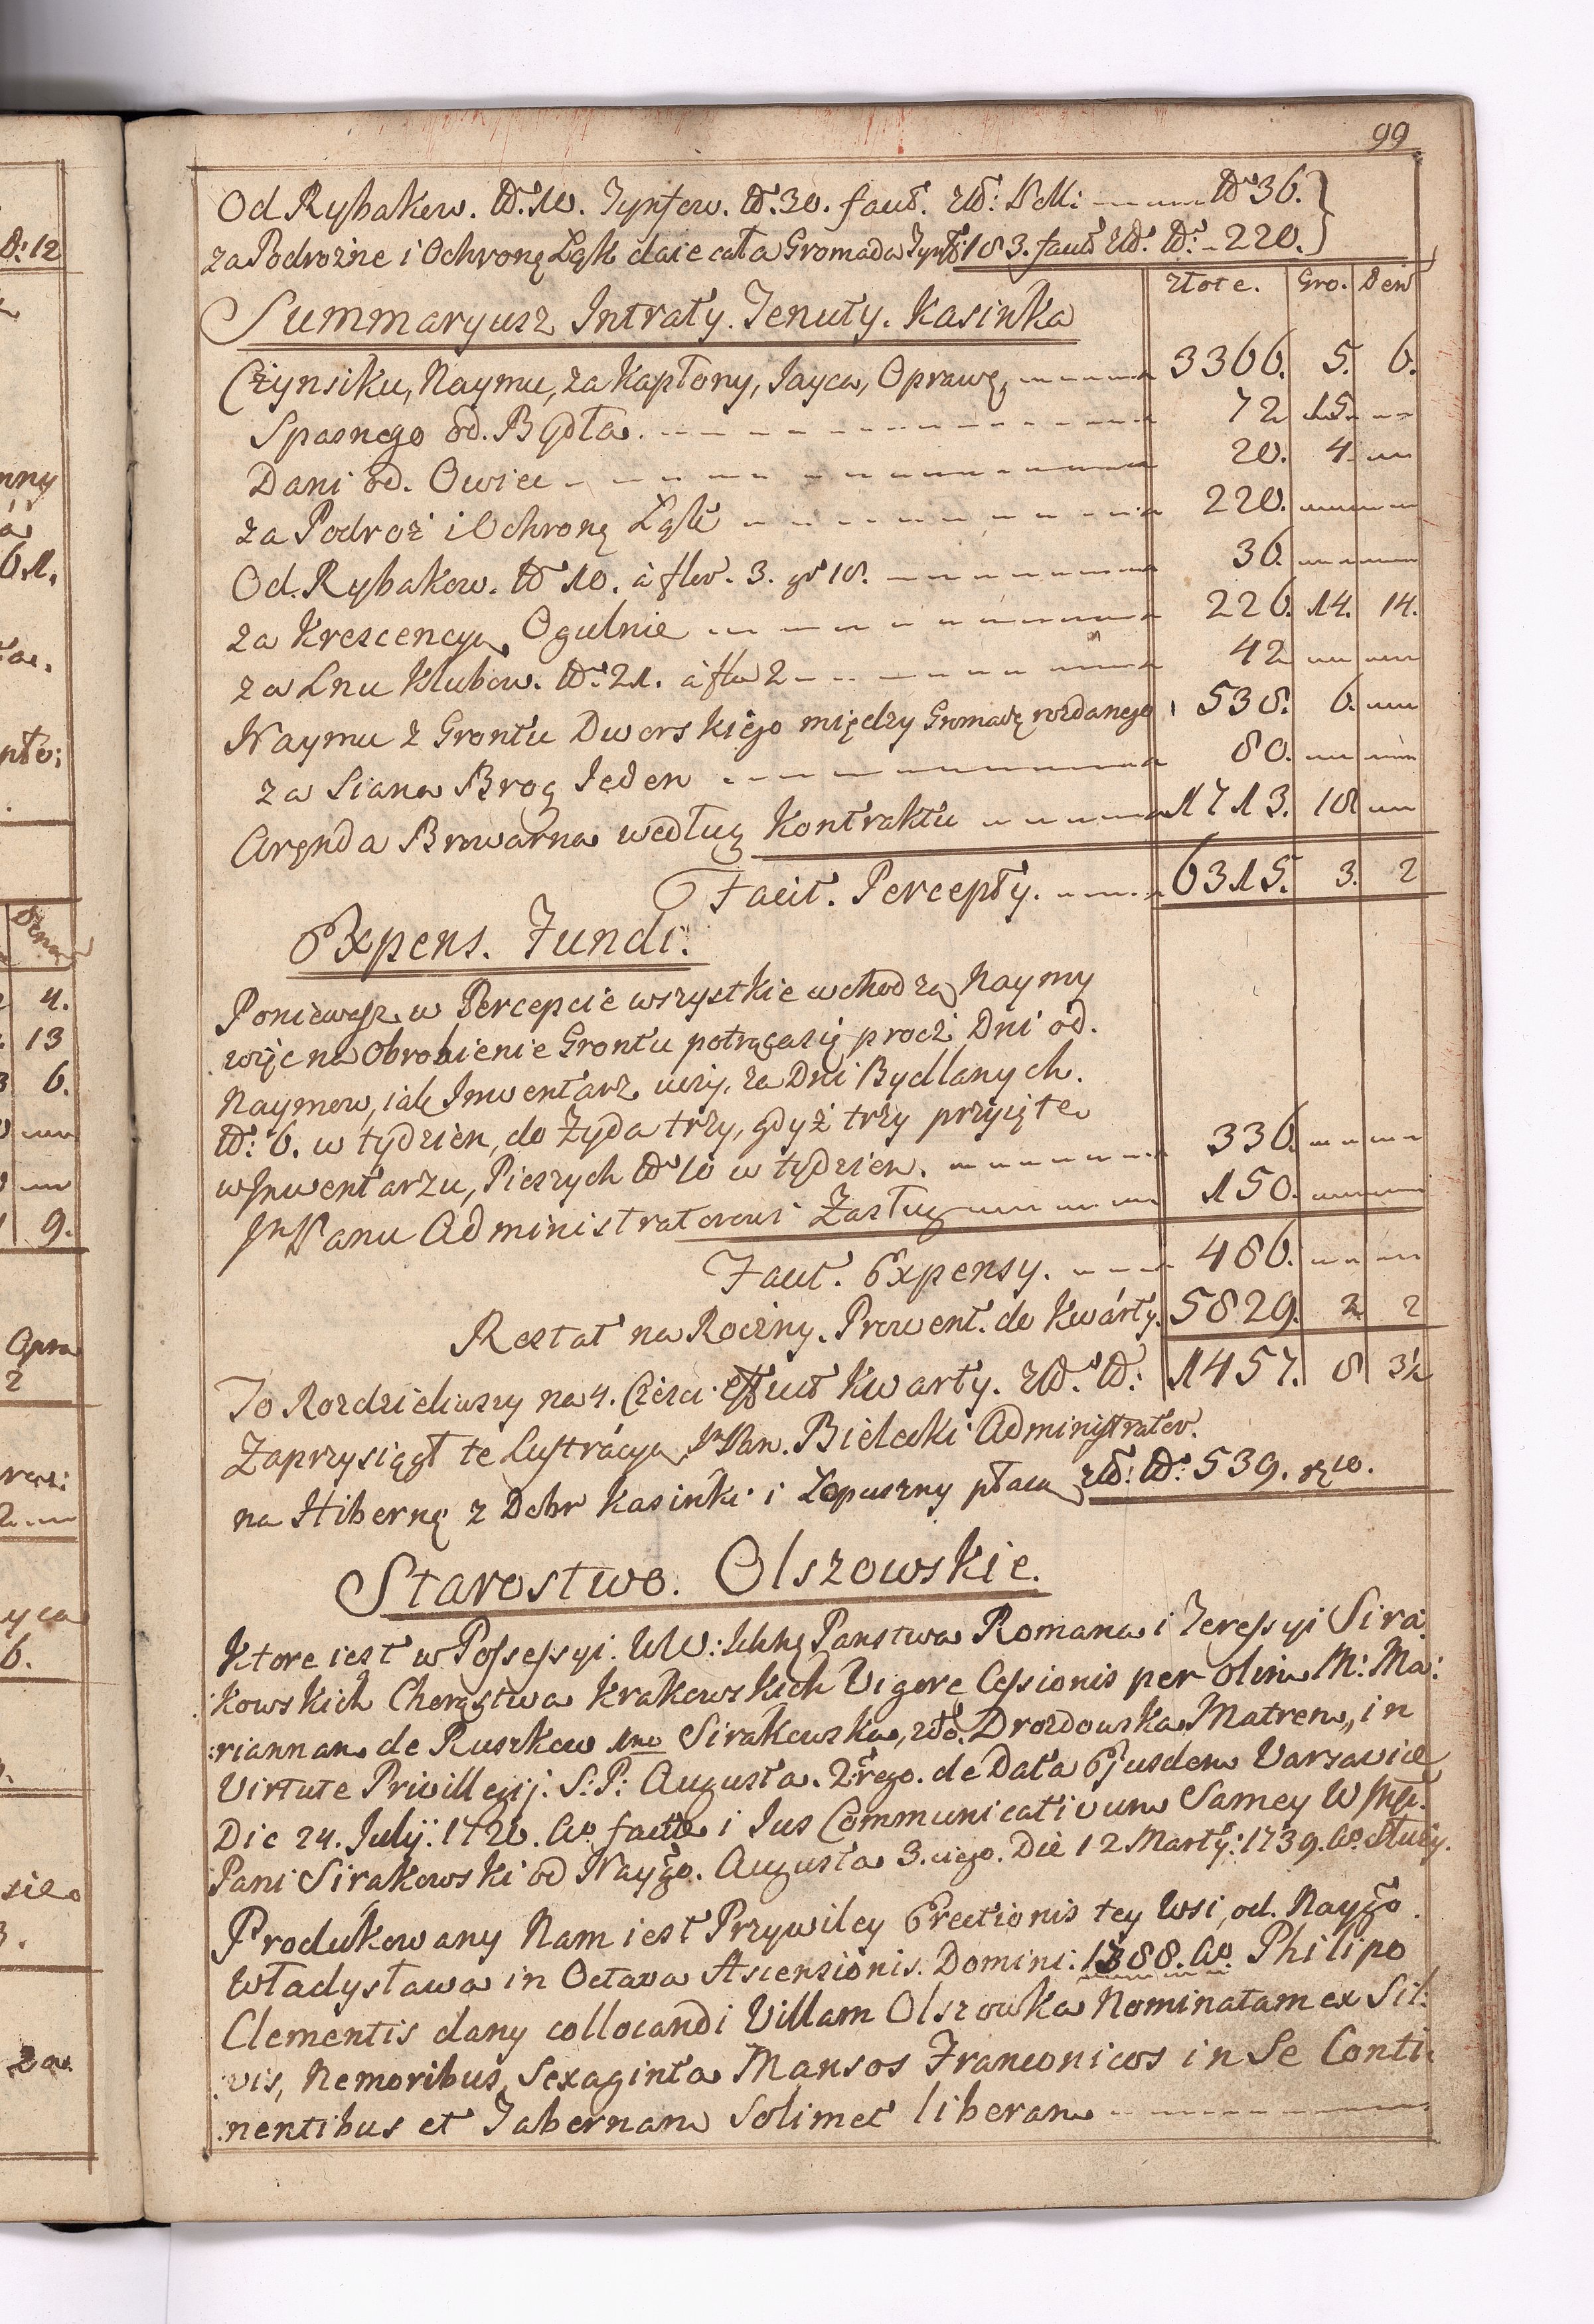 99
Od Rybakow. No. 10. Tynfow. No. 30. facit. zł: No 36.
za Podrożne i Ochronę Łąk daie cała Gromada Tynf: 183. facit zł: No. 220.
złote. Gro. Den
Summaryusz Intraty. Tenuty. Kasinka
Czynsiku, Naymu, za Kapłony, Jayca, Oprawę, 3366. 5. 6.
Spasnego od. Bydła. 72 15.
Dani od. Owiec 20. 4.
za Podroż i Ochronę Łąk 220.
Od. Rybakow. No 10. à flor. 3. gr 18. 36.
za Krescencyą Ogulnie 226. 14. 14.
za Lnu Klubow. No. 21. à flo 2 42
Naymu z Grontu Dworskiego między Gromadę rozdanego 538. 6.
za Siana Brog Jeden 80.
Arenda Browarna według Kontraktu 1713. 18
Facit. Percepty. 6315. 3. 2
Expens. Fundi.
Poniewasz w Percepcie wszystkie wchodzą Naymy
więc na Obrobienie Grontu potrącasię procz Dni od.
Naymow, iak Inwentarz uczy, za Dni Bydlanych.
No: 6. w tydzien, do Zyda trzy, gdyż trzy przyięte
w Inwentarzu, Pieszych No 10 w tydzien. 336.
Jm Panu Administratorowi Zasług 150.
Facit. Expensy. 486.
Restat na Roczny. Prowent. do Kwarty. 5829. 2 2
To Rozdzieliwszy na 4. Części efficit Kwarty. zł. No: 1457. 8 3½
Zaprzysiągł te Lustracyą Jm Pan. Bielecki Administrator.
na Hibernę z Dobr Kasinki i Łopuszny płacą zł: No: 539. g 10.
Starostwo. Olszowskie.
Ktore iest w Possessyi. WW: Ichmę Panstwa Romana i Teressyi Sira:
kowskich Chorąstwa Krakowskich Vigore Cessionis per olim M: Ma:
:riannam de Ruszkow 1mo Sirakowska, 2do. Drozdowska Matrem, in
Virtute Privillegij. S: P: Augusta. 2giego. de Data Ejusdem Varsaviæ
Die 24. Julij: 1720. Ao facta i Jus Communicativum Samey W Jmp.
Pani Sirakowski od Nayygo. Augusta 3.ciego. Die 12 Martij: 1739. Ao.
Produkowany Nam iest Przywiley Erectionis tey Wsi, od. Nayygo.
Władysława in Octava Ascensionis. Domini: 1388. Ao. Philipo
Clementis dany collocandi Villam Olszowka Nominatam ex Sil:
:vis, Nemoribus, Sexaginta Mansos Franconicos in Se Conti:
:nentibus et Tabernam Solimet liberam